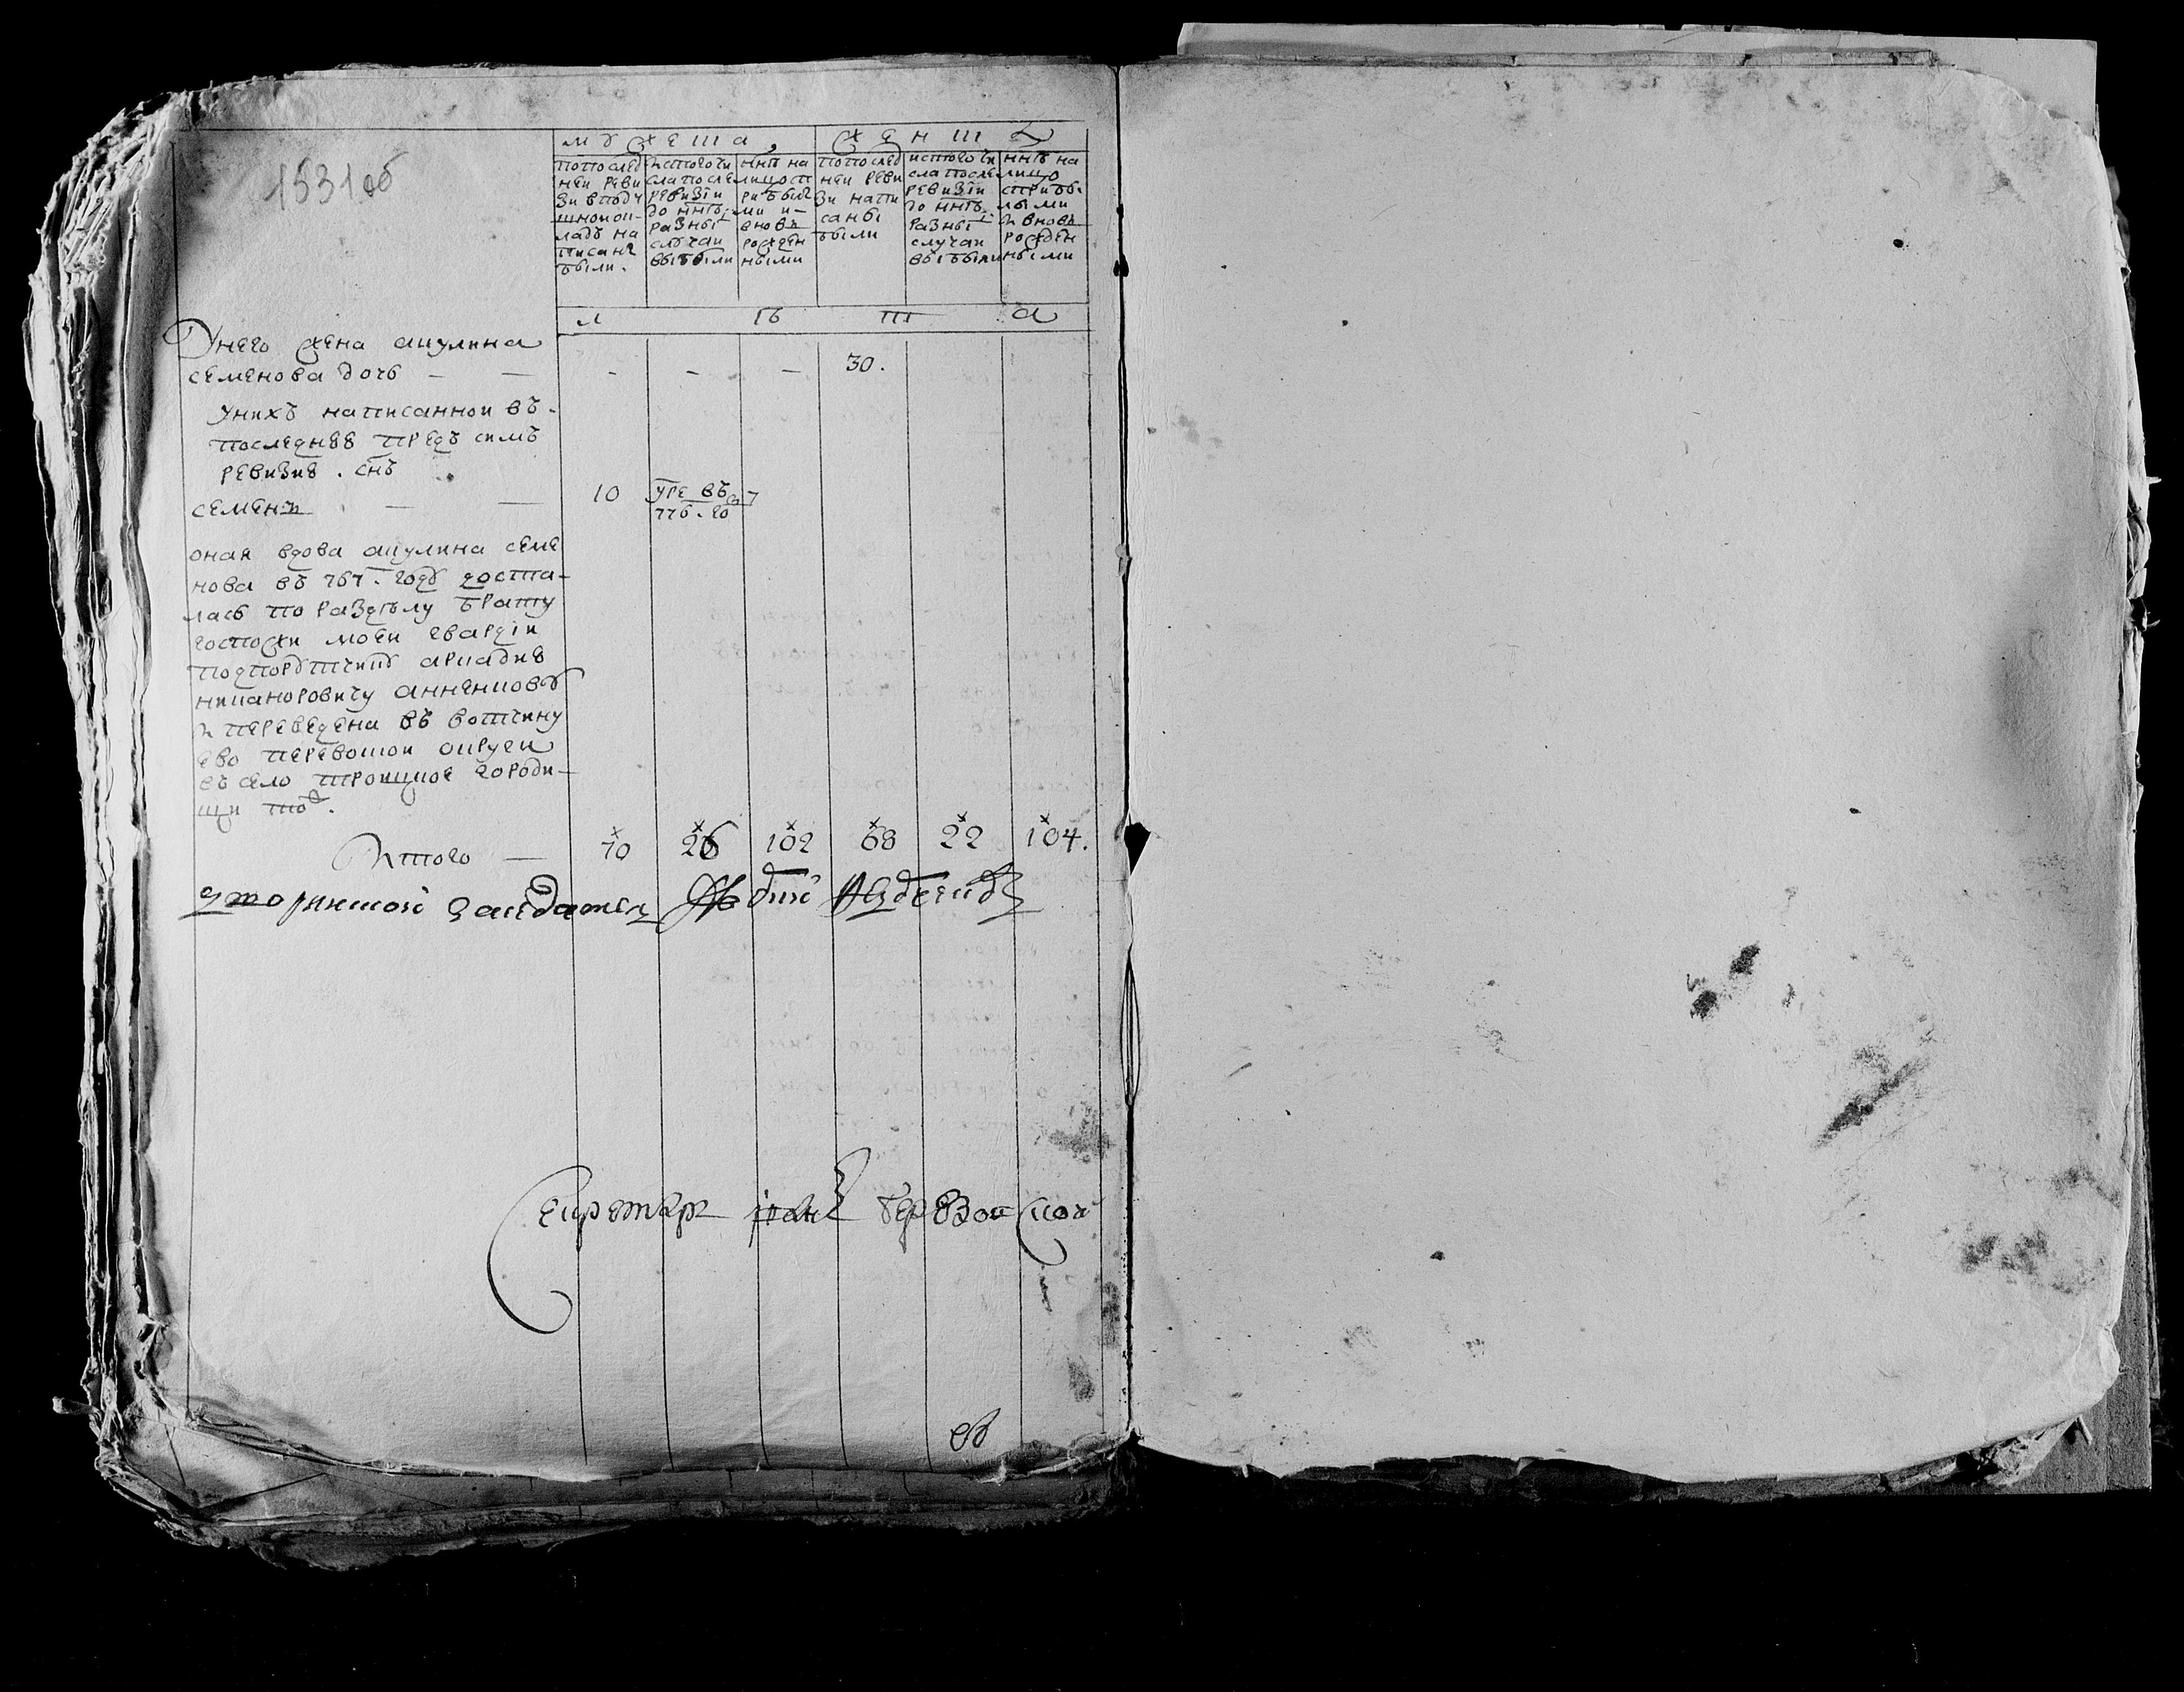 1531 об
мужеска,
женска
попослед
ней реви
зи вподу
шномок
ладъ на
писанъ
были.
истого чи
сла после
ревизiи
до ннѣ
разны
случаи
выбыли
ннѣ на
лицо п
рибылъ
ми и
вновь
рожден
ными
попослед
ней реви
зи напи
саны
были
истого чи
сла после
ревизiи
до ннѣ
разны
случаи
выбыли
ннѣ на
лицо
спрібы
лыми
и вновь
рожден
ными
л ѣ т а
Унего жена акулина
семенова дочь — — - - - 30.
унихъ написанной въ
последнее предъ симъ
ревизие. снъ
семенъ — — 10 уме въ
776. го
оная вдова акулина семе
нова въ 767. году доста-
лась по разделу брату
госпожи моеи гвардiи
подпорутчику аркадие
никаноровичу анненкову
и переведена въ вотчину
ево перевошкои округи
въ село троицкое городи-
щи тоже.
Итого — 70 26 102 68 22 104.
Секретарь iванъ березонской